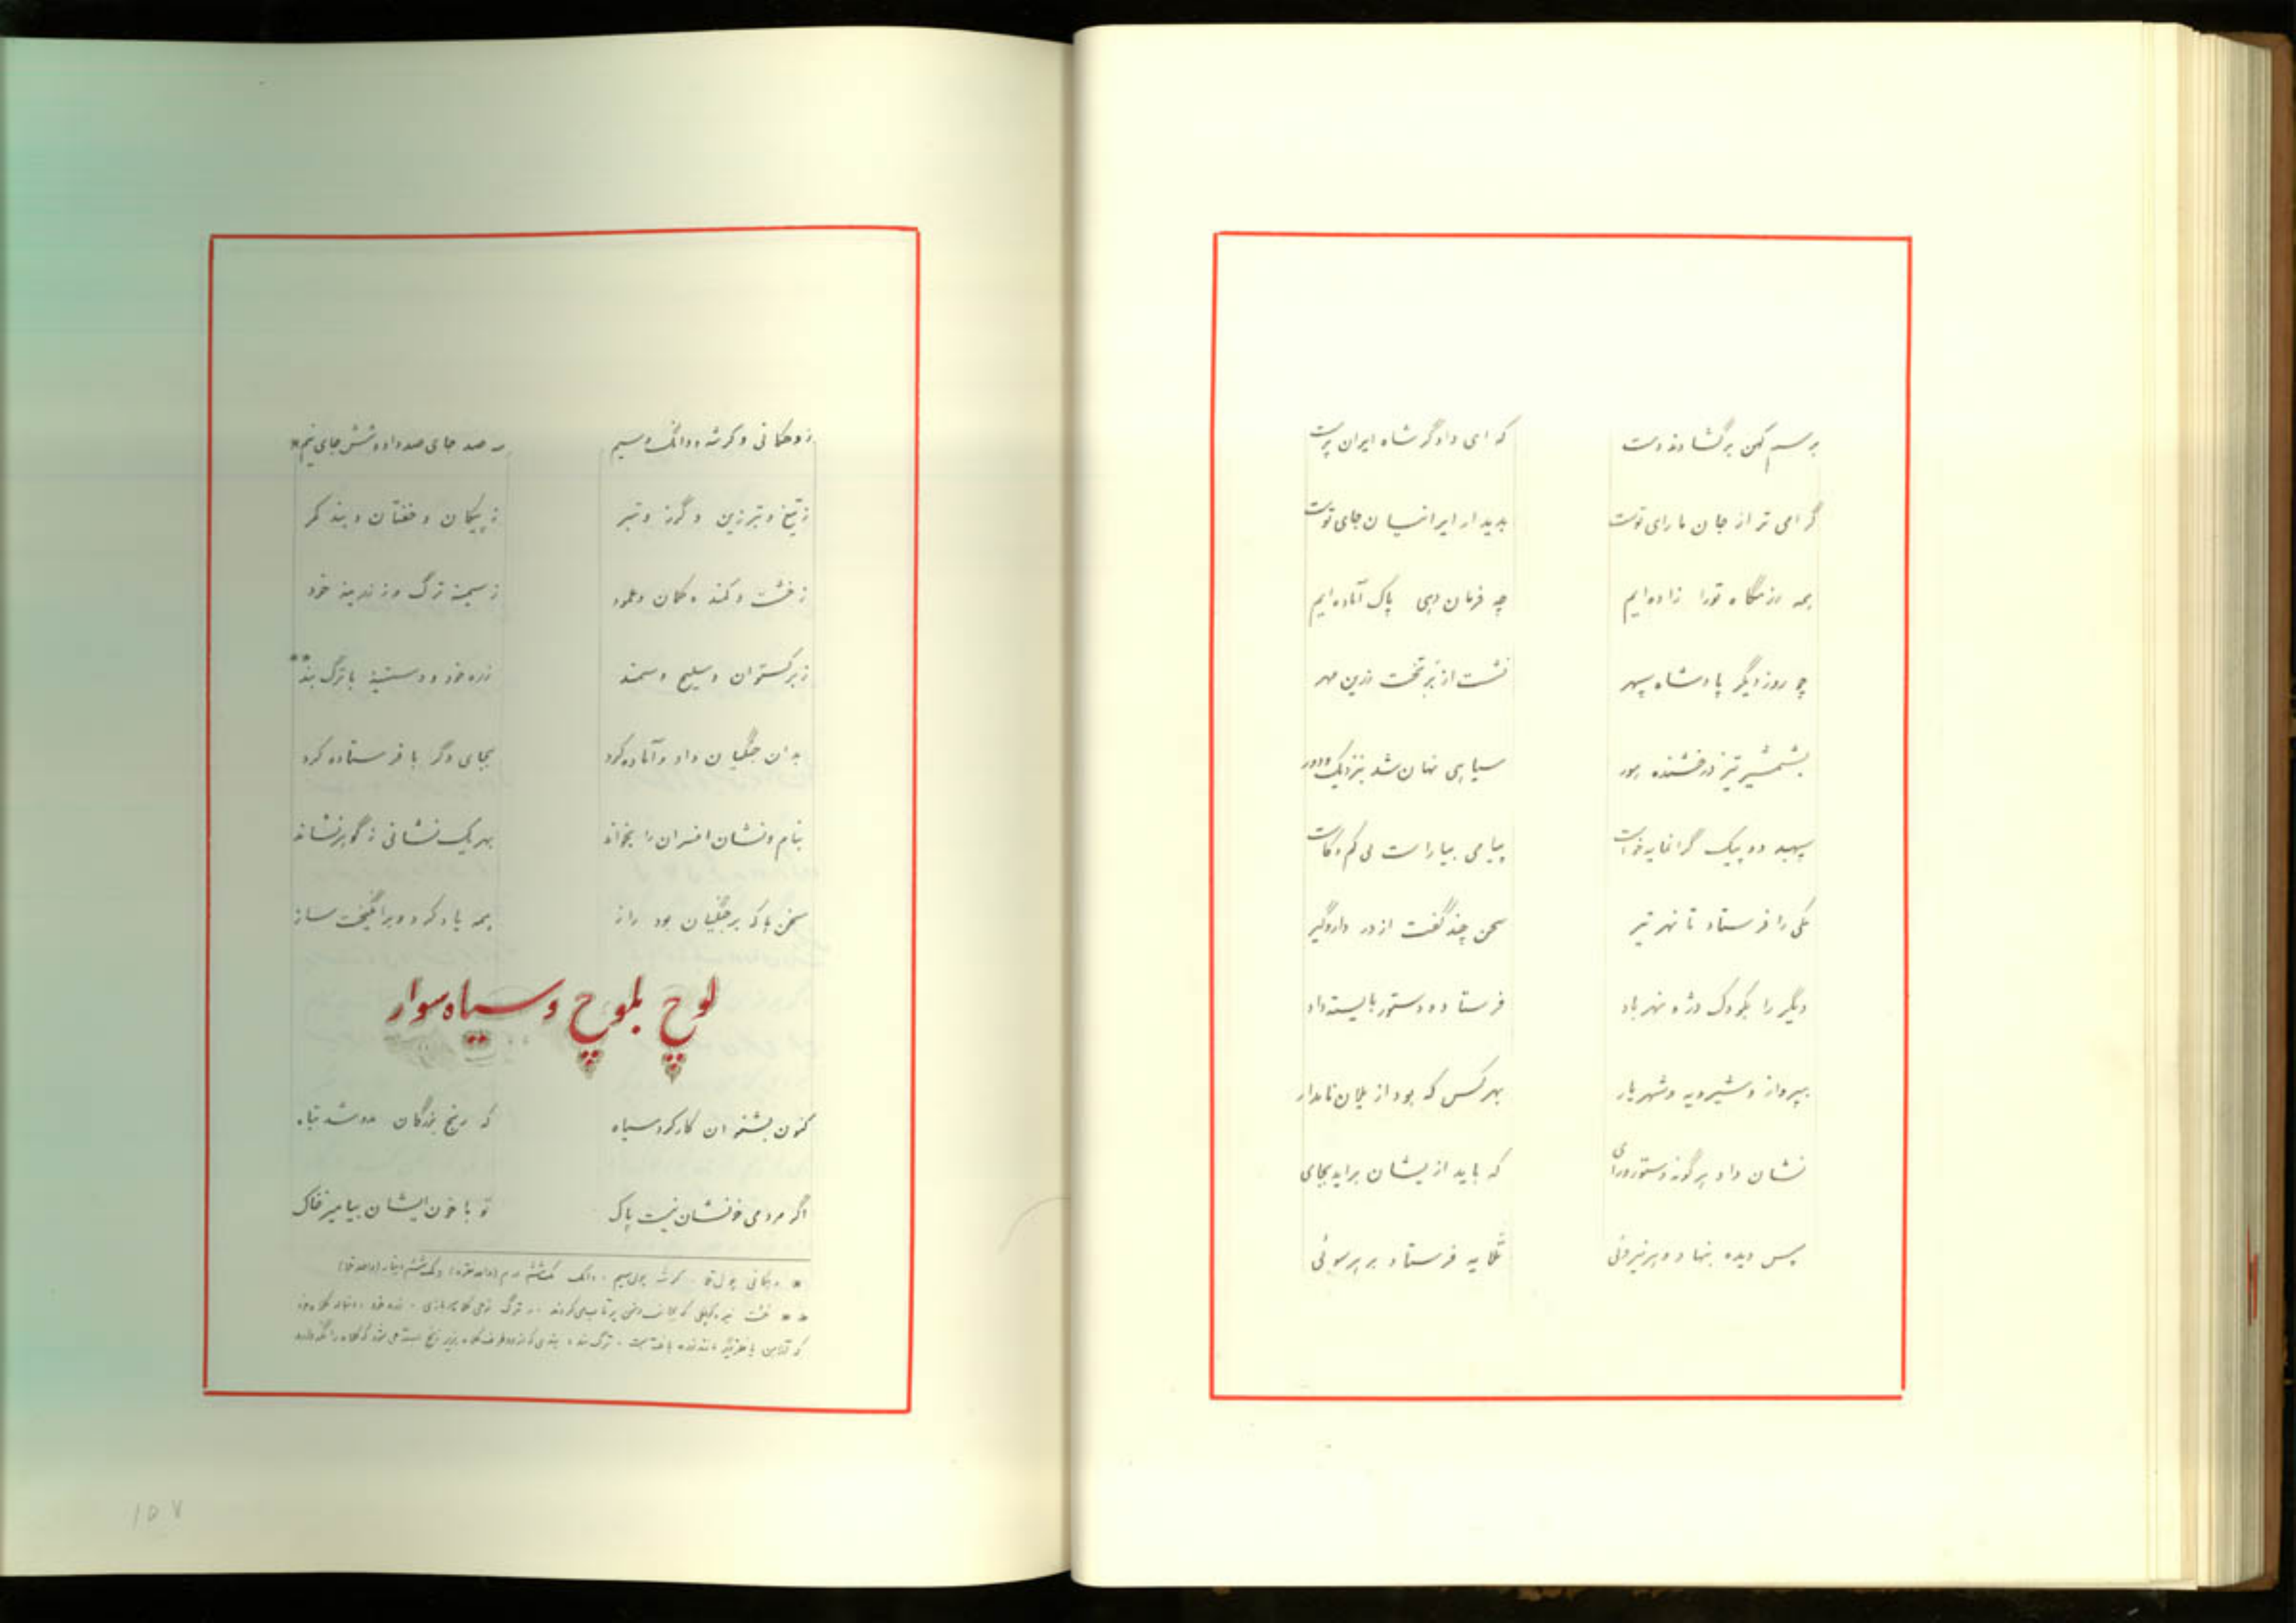 برسم کهن برگشادند دست
که ای دادگر شاه ایران پرست
گرامی تر از جان ما رای توست
بدیدار ایرانیان جای توست
همه رزمگاه تورا زاده‌ایم
چه فرمان دهی پاک آماده‌ایم
چو روز دیگر پادشاه سپهر
نشست از بر تخت زرین مهر
بشمشیر تیز درخشنده هور
سیاهی نهان شد
سپهبد دو پیک گرانمایه خواست
پیامی بیاراست بی کم و کاست
یکی را فرستاد تا نهر تیر
سخن چند گفت از در داروگیر
دیگر را بکودک دژ و نهر باد
فرستاد و دستور بایسته داد
بپرواز و شیرویه و شهریار
بهر کس که بود از یلان نامدار
نشان داد هر گونه دستور و رای
که باید ازیشان براید بجای
پس دیده بنهاد و هر نیرونی
طلایه فرستاد بر هر سوئی
ز دهگانی و کرشه و دانگ و سیم
سه صد جای صد داد و شش جای نیم *
ز تیغ و تبرزین و گرز و تبر
ز پیکان و خفتان و بند کمر
ز خشت و کمند و کمان و عمود
ز سیمینه ترگ وز زرینه خود
ز برگستوان و سلیح و سمند
زره خود و دستینه با ترگ بند **
بدان جنگیان داد و آماده کرد
بجای دگر با فرستاده کرد
بنام و نشان افسران را بخواند
بهر یک نشانی ز گوهر نشاند
سخن ها که بر جنگیان بود راز
همه یاد کرد و برانگیخت ساز
لوچ بلوچ و سیاه سوار
کنون بشنو ان کار کرد سیاه
که رنج بزرگان ازو شد تباه
اگر مردمی خونشان نیست پاک
تو با خون ایشان بیامیز خاک
* دهگانی پول طلا . کرشه پول سیم . دانگ یک ششم درم (واحد نقره) و یک ششم دینار (واحد طلا)
** خشت نیزه کوچکی که بجانب دشمن پرتاب می کردند . ترگ نوعی کلاه سربازی . زره خود
ترگ بند ، بندی که از دو طرف کلاه بزیر زنخ بسته می شود که کلاه را نگه دارد
۱۵۷